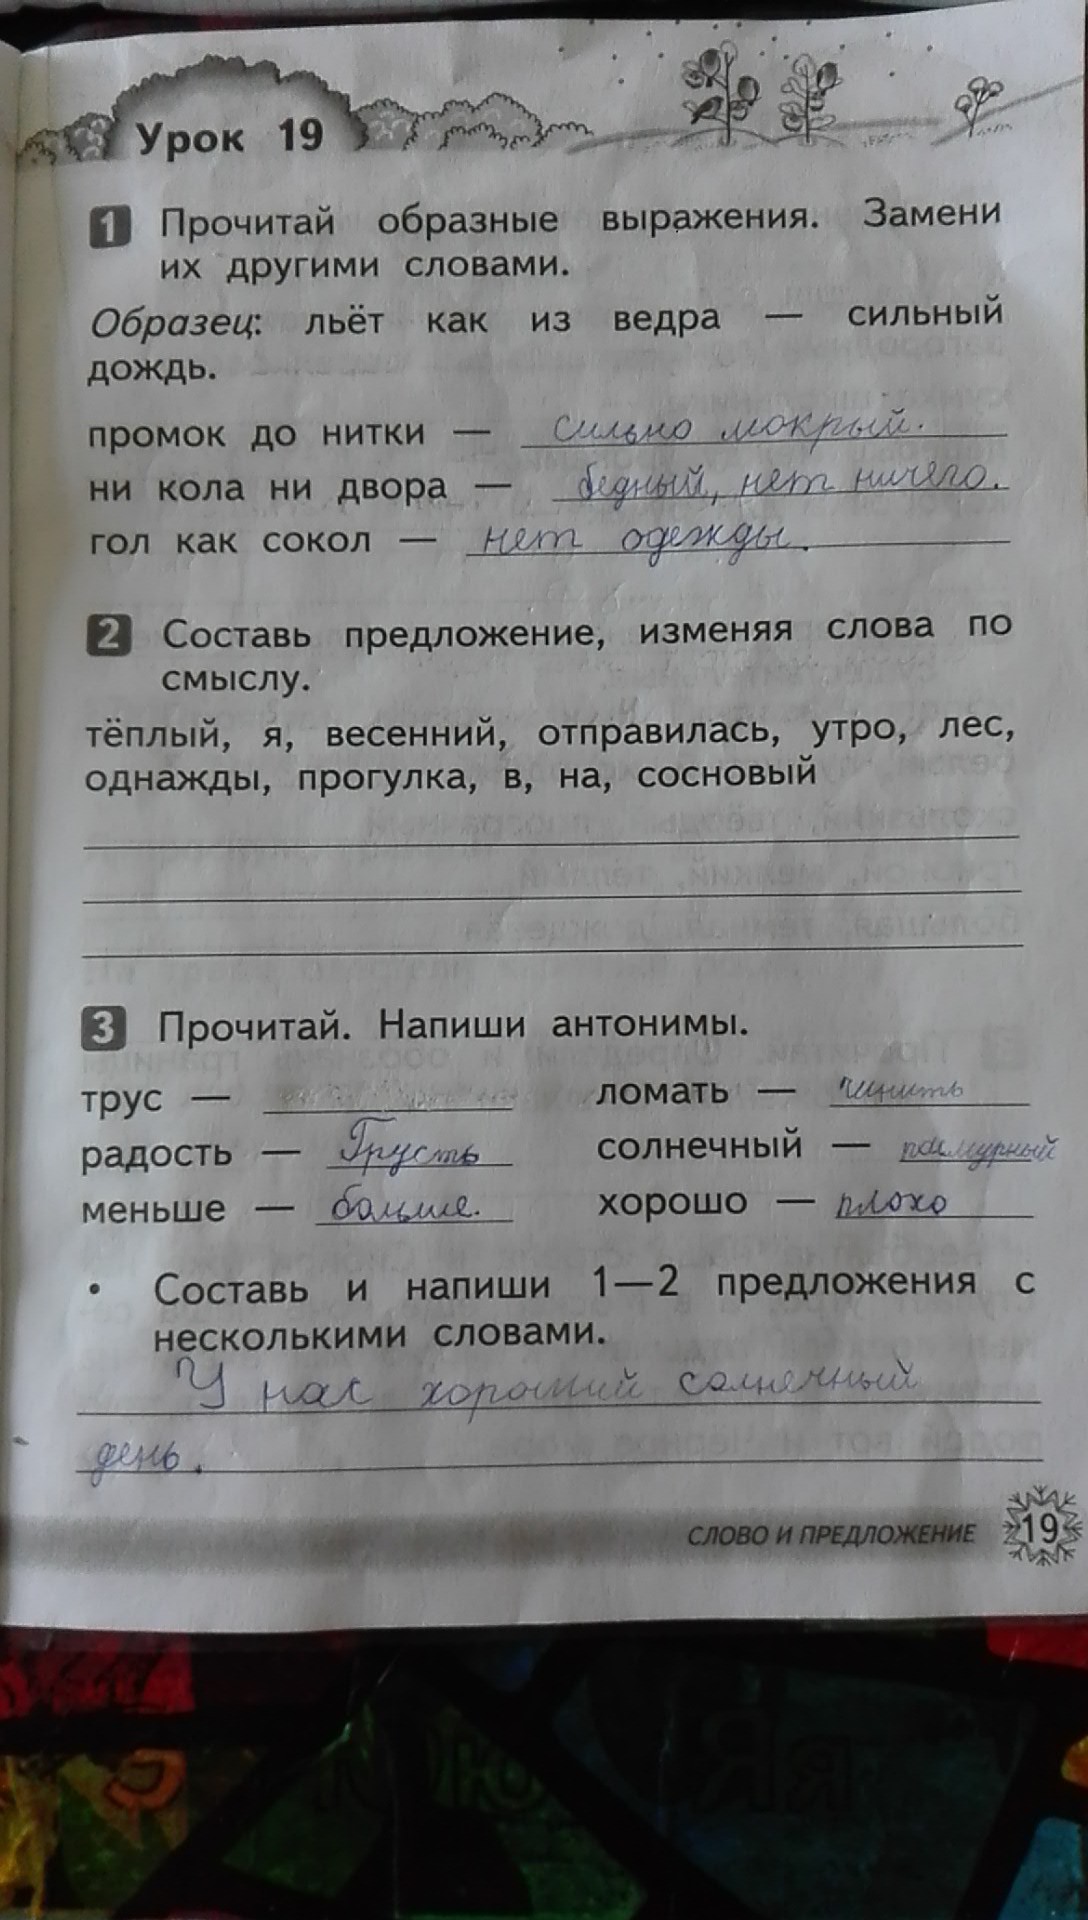 Урок 19
1 Прочитай образные выражения. Замени
их другими словами.
Образец: льёт как из ведра — сильный
дождь.
промок до нитки — сильно мокрый.
ни кола ни двора — бедный, нет ничего.
гол как сокол — нет одежды.
2 Составь предложение, изменяя слова по
смыслу.
тёплый, я, весенний, отправилась, утро, лес,
однажды, прогулка, в, на, сосновый
3 Прочитай. Напиши антонимы.
трус — ломать — чинить
радость — Грусть солнечный — пасмурный
меньше — больше. хорошо — плохо
• Составь и напиши 1—2 предложения с
несколькими словами.
У нас хороший солнечный
день.
СЛОВО И ПРЕДЛОЖЕНИЕ 19